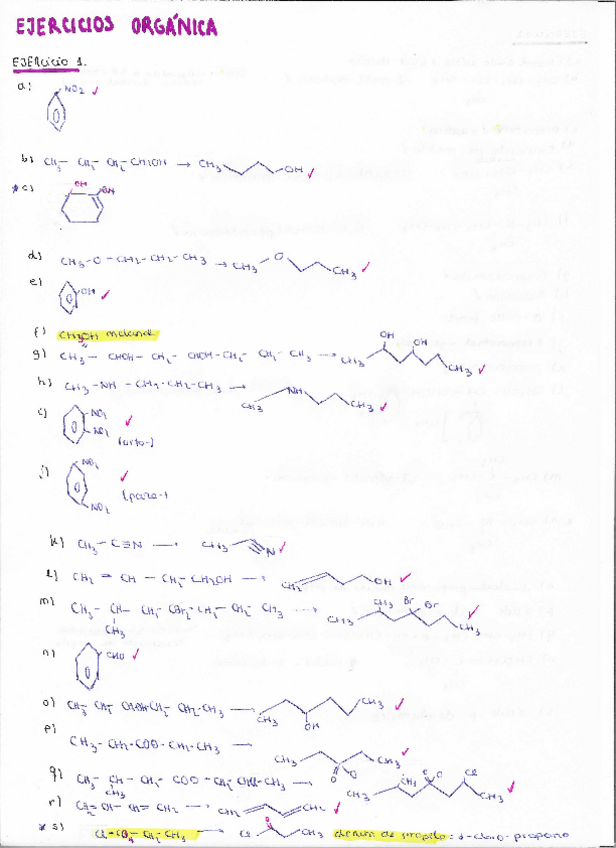 EJERCICIOS ORGÁNICA
EJERCICIO 1.
a) NO2 ✓
b) CH3- CH2- CH2- CH2OH → CH3 OH ✓
*c) OH OH
d) CH3-O-CH2-CH2-CH3 → CH3 O CH3 ✓
e) OH ✓
f)
g) CH3- CHOH- CH2- CHOH-CH2- CH2- CH3 → CH3 OH OH CH3 ✓
h) CH3-NH-CH2-CH2-CH3 → CH3 NH CH3 ✓
i) NO2 NO2 (orto-) ✓
j) NO2 NO2 (para-) ✓
k) CH3-C≡N → CH3 N ✓
l) CH2=CH-CH2-CH2OH → CH2 OH ✓
m) CH3-CH-CH2-CBr2-CH2-CH2-CH3 → CH3 CH3 Br Br CH3 ✓
CH3
n) CHO ✓
o) CH3 CH2 CH2-CH3 → CH3 OH CH3 ✓
p) CH3-CH2-COO-CH2-CH3 → CH3 O O CH3 ✓
q) CH3-CH-CH2-COO-CH2-CHCl-CH3 → CH3 CH3 O O Cl CH3 ✓
r) CH2=CH-CH=CH2 → CH2 CH2 ✓
*s) CH2-CH3 → Cl O CH3 propilo: 1-cloro-propano